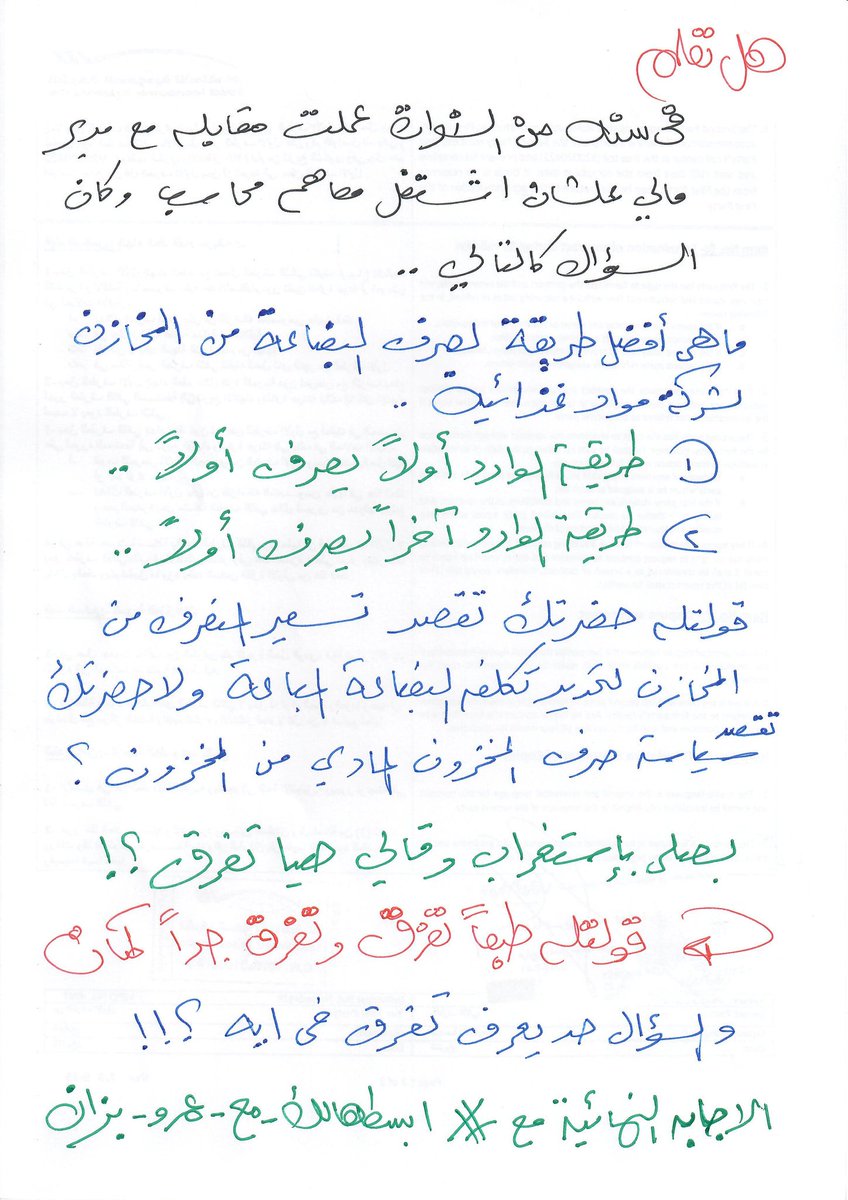 هل تعلم
فى سنه من السنوات عملت مقابله مع مدير
مالي علشان اشتغل معاهم محاسب وكان
السؤال كالتالي ..
ما هى أفضل طريقة لصرف البضاعة من المخازن
لشركة مواد غذائية ..
١) طريقة الوارد أولاً يصرف أولاً ..
٢) طريقة الوارد آخراً يصرف أولاً ..
قولتله حضرتك تقصد تسعير المنصرف من
المخازن لتحديد تكلفه البضاعة المباعة ولا حضرتك
تقصد سياسة صرف المخزون المادي من المخزون ؟
بصلى بإستغراب وقالي هيا تفرق ؟!
قولتله طبعاً تفرق وتفرق جداً كمان
والسؤال حد يعرف تفرق فى ايه ؟!!!
الاجابه النهائية مع # ابسطهالك-مع-عمرو-بزان